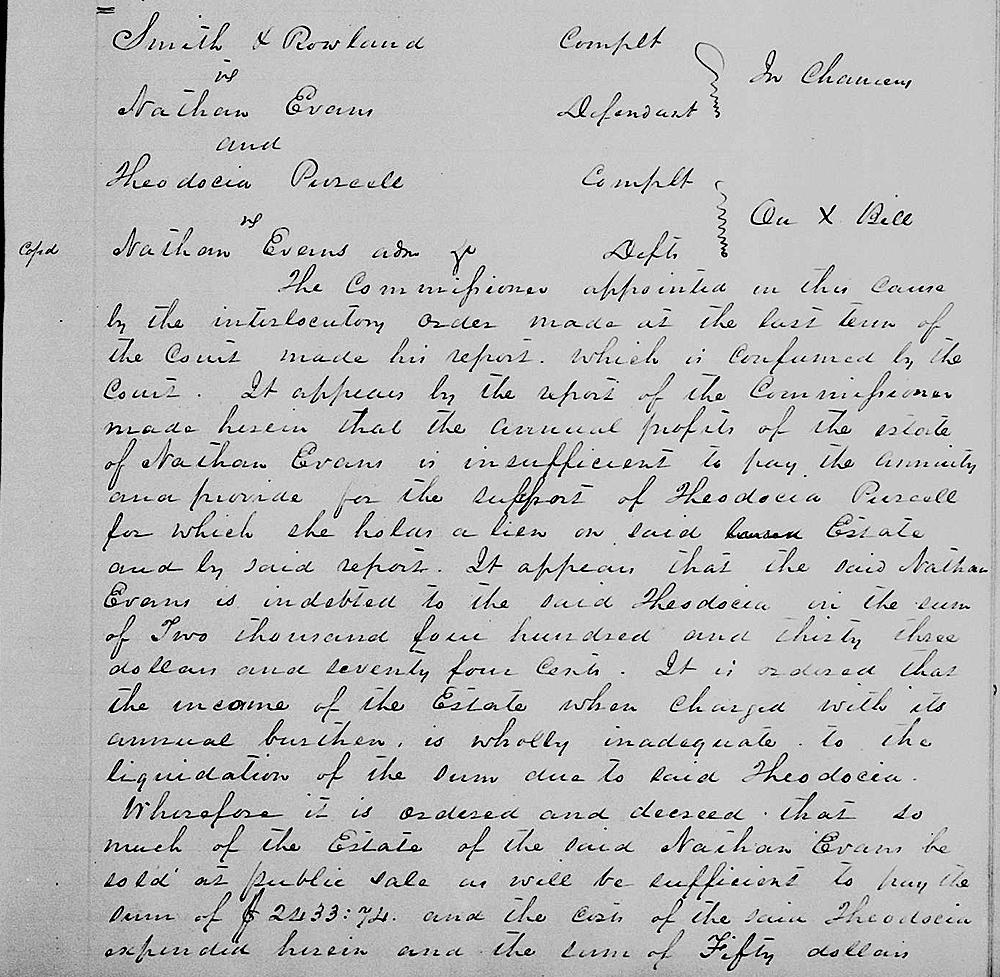 Smith & Rowland Complt
vs In Chancery
Nathan Evans Defendant
and
Theodocia Purcell Complt
vs On X Bill
Copd Nathan Evans adm & Defts
The Commissioner appointed in this cause
by the interlocutory order made at the last term of
the Court made his report. which is confirmed by the
Court. It appears by the report of the Commissioner
made herein that the annual profits of the estate
of Nathan Evans is insufficient to pay the annuity
and provide for the support of Theodocia Purcell
for which she holds a lien on said Estate
and by said report. It appears that the said Nathan
Evans is indebted to the said Theodocia in the sum
of Two thousand four hundred and thirty three
dollars and seventy four Cents. It is ordered that
the income of the Estate when charged with its
annual burthen, is wholly inadequate to the
liquidation of the sum due to said Theodocia.
Wherefore it is ordered and decreed that so
much of the Estate of the said Nathan Evans be
sold at public sale as will be sufficient to pay the
sum of $2433:74. and the costs of the said Theodocia
expended herein and the sum of Fifty dollars